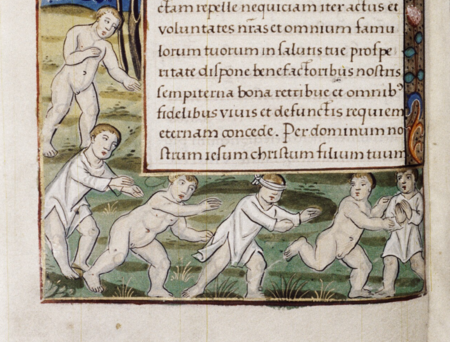 ctam repelle nequiciam iter actus et
voluntates nr̃as et omnium famu
lorum tuorum in salutis tue prospe
ritate dispone benefactoribus nostris
sempiterna bona retribue et omnibꝰ
fidelibus vivis et defunctis requiem
eternam concede. Per dominum no
strum iesum christum filium tuum